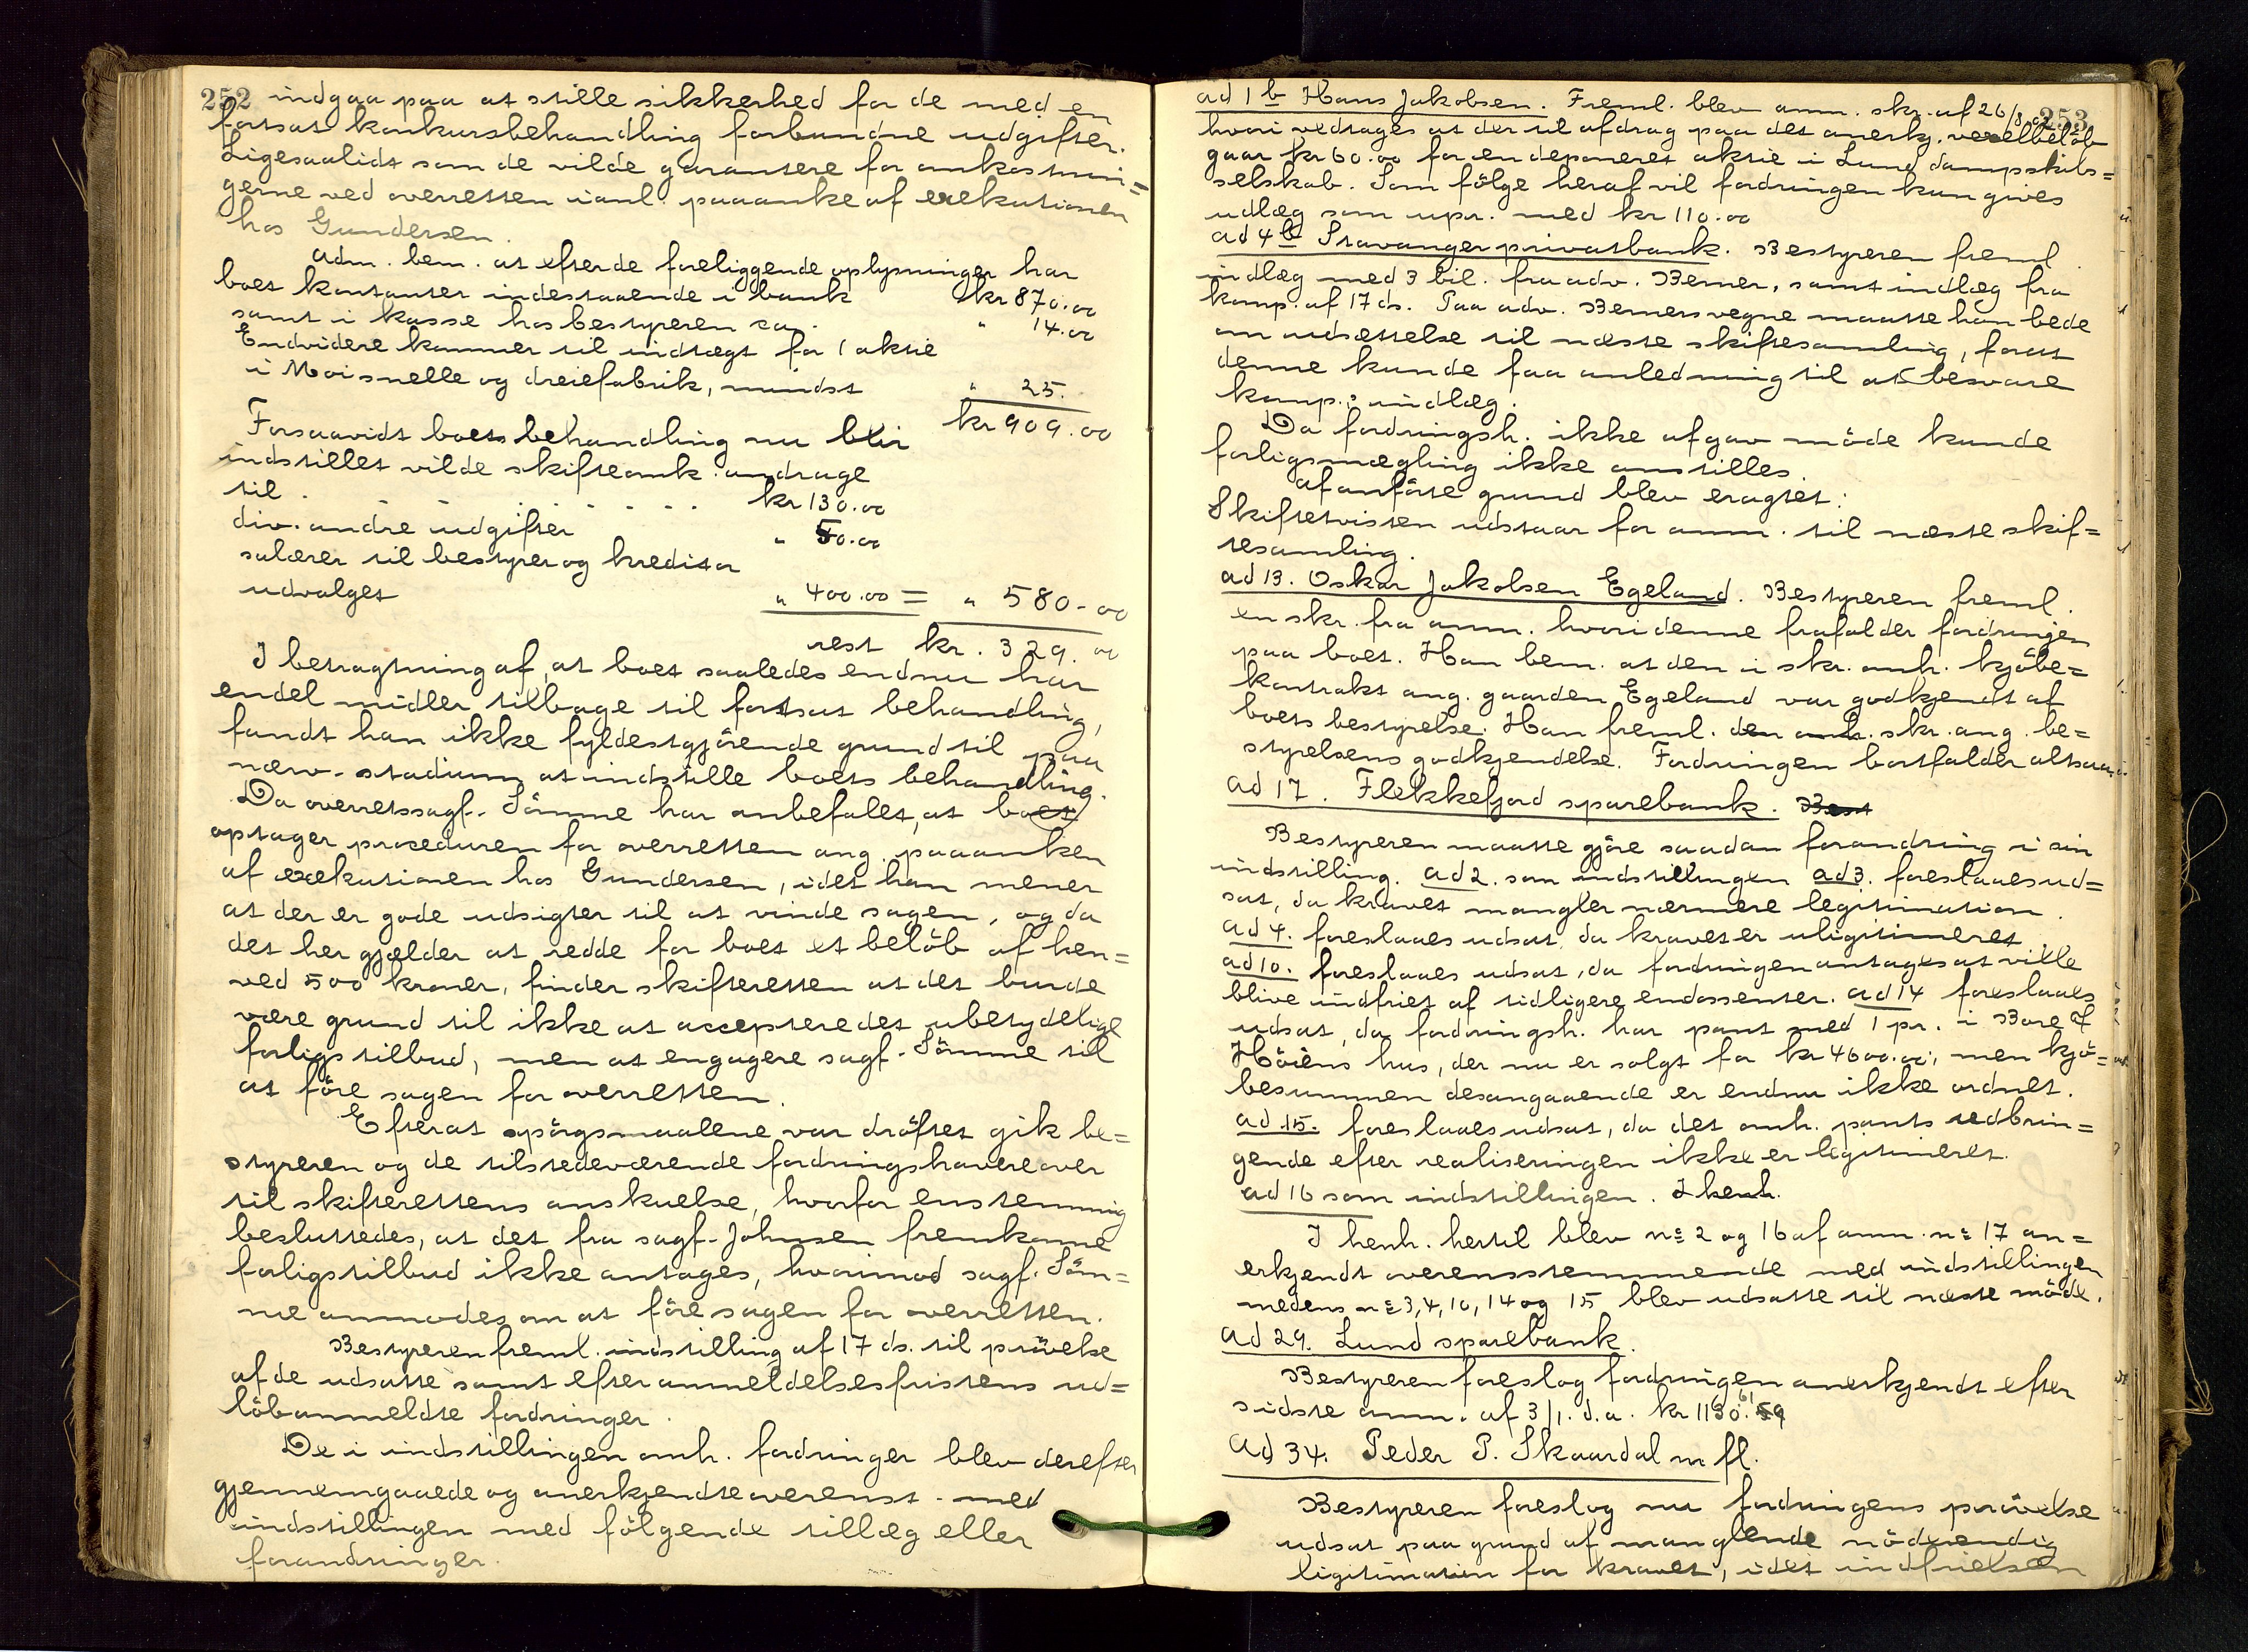 252 indgaa paa at stille sikkerhed for de med en
fortsat konkursbehandling forbundne udgifter.
Ligesaalidt som de vilde garantere for omkostnin=
gerne ved overretten i anl. paaanke af exekutionen
hos Gundersen.
Adm. bem. at efter de foreliggende oplysninger har
boet kontanter indestaaende i bank kr 870.00
samt i kasse hos bestyreren ca. " 14.00
Endvidere kommer til indtægt for 1 aktie
i Moi snelle og dreiefabrik, mindst " 25.
kr 909.00
Forsaavidt boets behandling nu blir
indstillet vilde skifteomk. andrage
til . - - - . . . . kr 130.00
div. andre udgifter " 50.00
salærer til bestyrer og kreditor
udvalget " 400.00 = " 580-00
rest kr. 329.00
I betragtning af, at boet saaledes endnu har
endel midler tilbage til fortsat behandling,
fandt han ikke fyldestgjørende grund til paa
nærv. stadium at indstille boets behandling.
Da overretssagf. Sömme har anbefalet, at boet
optager proceduren for overretten ang. paaanken
af exekutionen hos Gundersen, idet han mener
at der er gode udsigter til at vinde sagen, og da
det her gjælder at redde for boet et belöb af hen=
ved 500 kroner, finder skifteretten at det burde
være grund til ikke at acceptere det ubetydelige
forligstilbud, men at engagere sagf. Sömme til
at före sagen for overretten.
Efterat spörgsmaalene var dröftet gik be=
styreren og de tilstedeværende fordringshavere over
til skifterettens anskuelse, hvorfor enstemmig
besluttedes, at det fra sagf. Johnsen fremkomne
forligstilbud ikke antages, hvorimod sagf. Söm=
me anmodes om at före sagen for overretten.
Bestyreren freml. indstilling af 17 ds. til prövelse
af de udsatte samt efter anmeldelsesfristens ud=
löb anmeldte fordringer.
De i indstillingen omh. fordringer blev derefter
gjennemgaaede og anerkjendte overenst. med
indstillingen med fölgende tillæg eller
forandringer.
253
ad 1 b Hans Jakobsen. Freml. blev anm. skr. af 26/8
hvori vedtages at der til afdrag paa det anerkj. vexelbelöb
gaar kr 60.00 for en deponeret aktie i Lund dampskibs=
selskab. Som fölge heraf vil fordringen kun gives
udlæg som upr. med kr 110.00
ad 4 b Stavanger privatbank. Bestyreren freml.
indlæg med 3 bil. fra adv. Berner, samt indlæg fra
komp. af 17 ds. Paa adv. Berners vegne maatte han bede
om udsættelse til næste skiftesamling, forat
denne kunde faa anledning til at besvare
komp.s indlæg.
Da fordringsh. ikke afgav möde kunde
forligsmægling ikke anstilles.
Af anförte grund blev eragtet:
Skiftetvisten udstaar for anm. til næste skif=
tesamling.
ad 13. Oskar Jakobsen Egeland. Bestyreren freml.
en skr. fra anm. hvori denne frafalder fordringen
paa boet. Han bem. at den i skr. omh. kjöbe=
kontrakt ang. gaarden Egeland var godkjendt af
boets bestyrelse. Han freml. den omh. skr. ang. be=
styrelsens godkjendelse. Fordringen bortfalder altsaa.
ad 17. Flekkefjord sparebank. Best
Bestyreren maatte gjöre saadan forandring i sin
indstilling. ad 2. som indstillingen ad 3. foreslaaes ud=
sat, da kravet mangler nærmere legitimation.
ad 4. foreslaaes udsat, da kravet er uligitimeret.
ad 10. foreslaaes udsat, da fordringen antages at ville
blive indfriet af tidligere endossenter. ad 14 foreslaaes
udsat, da fordringsh. har pant med 1 pr. i Bore af
Höiens hus, der nu er solgt for kr 4600.00, men kjö=
besummen desangaaende er endnu ikke ordnet.
ad 15. foreslaaes udsat, da det omh. pants udbrin=
gende efter realiseringen ikke er legitimeret.
ad 16 som indstillingen. I henh.
I henh. hertil blev no 2 og 16 af anm. no 17 an=
erkjendt overensstemmende med indstillingen
medens no 3, 4, 10, 14 og 15 blev udsatte til næste möde.
ad 29. Lund sparebank.
Bestyreren foreslog fordringen anerkjendt efter
sidste anm. af 3/1. d.a. kr 1130.61 59
ad 34. Peder P. Skaardal m fl.
Bestyreren foreslog nu fordringens prövelse
udsat paa grund af manglende nödvendig
ligitimation for kravet, idet indfrielsen